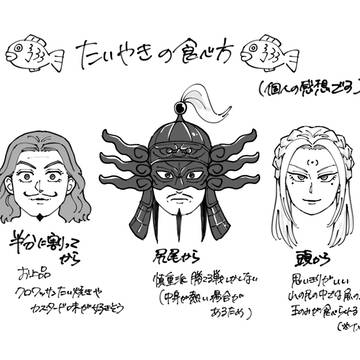 たいやきの食べ方
(個人の感想です)
半分に割って
から
お上品
クロワッサンたい焼きや
カスタード味が好きそう
尻尾から
慎重派 勝てる戦しかしない
(中身が熱い場合が
あるため)
頭から
思いきりがいい
山の民の中では